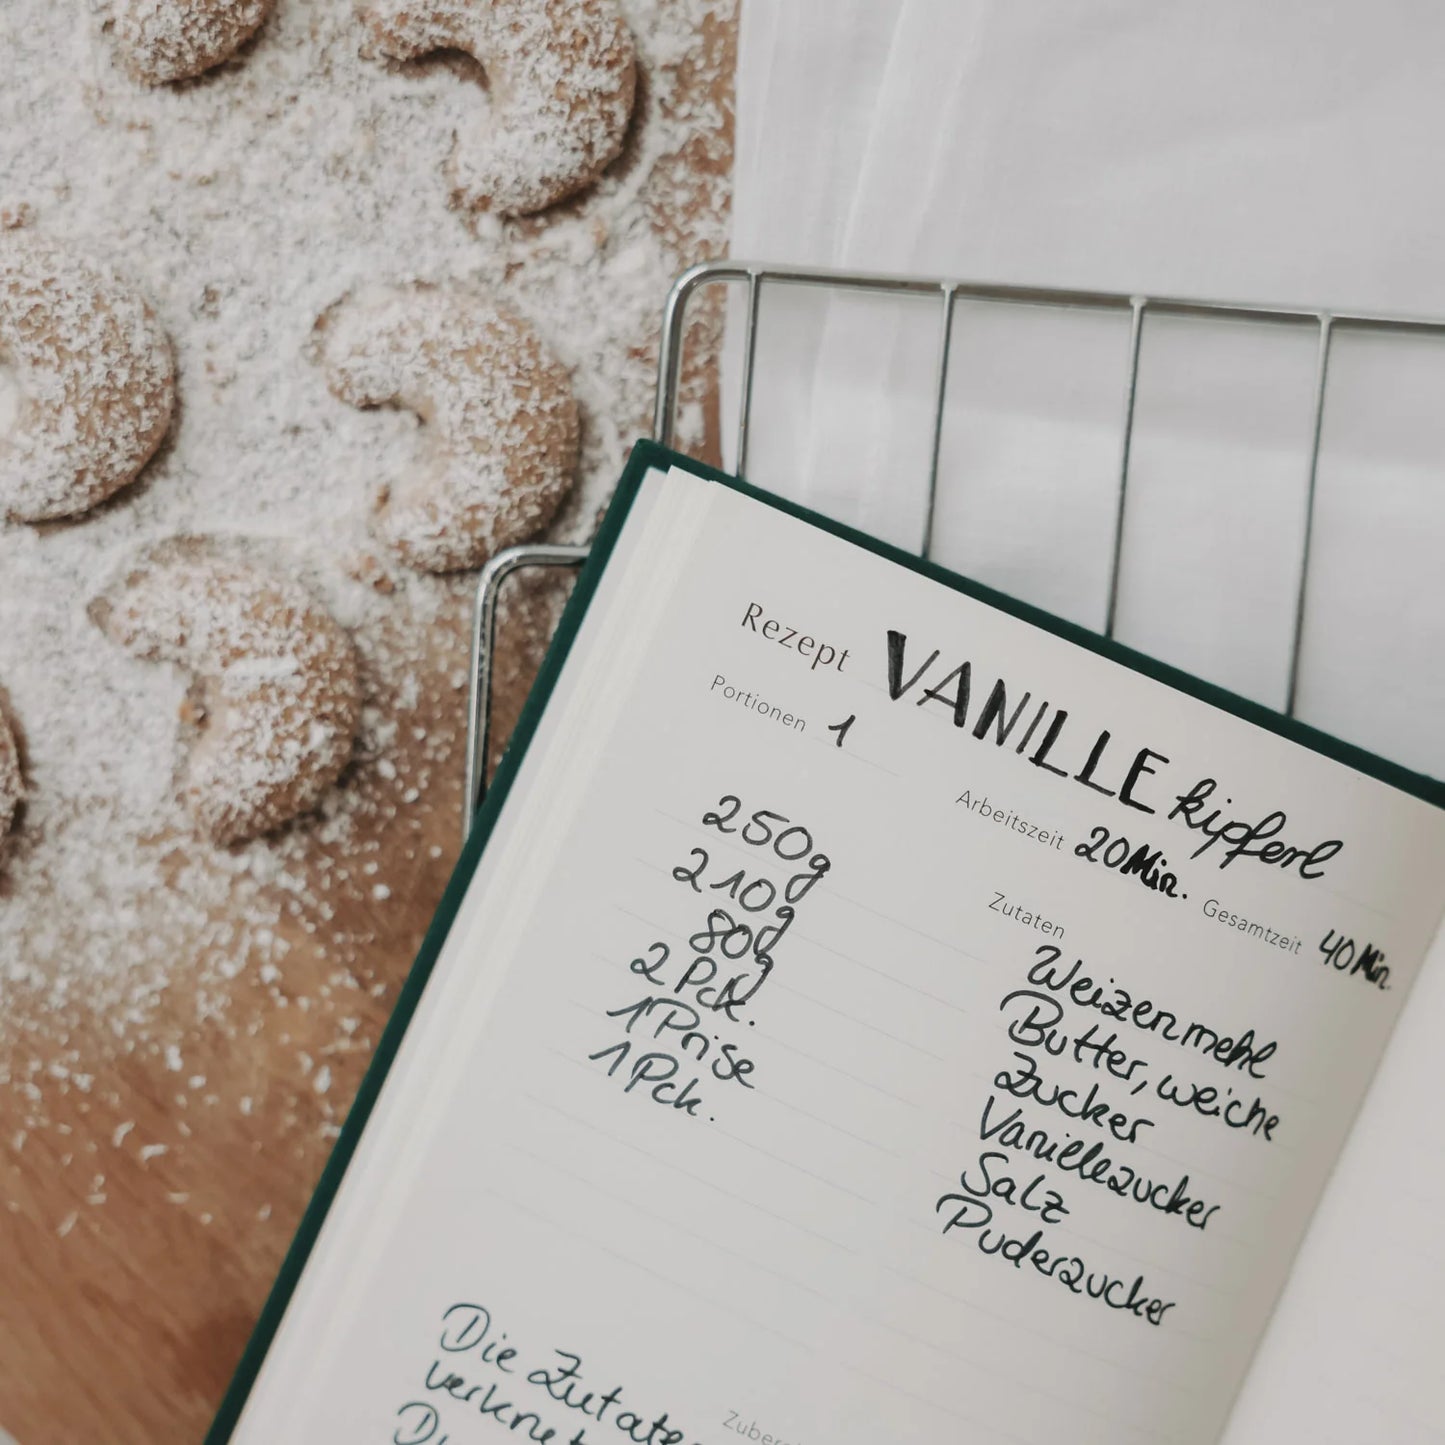 Rezept VANILLE kipferl
Portionen 1 Arbeitszeit 20 Min. Gesamtzeit 40 Min.
Zutaten
250g Weizenmehl
210g Butter, weiche
80g Zucker
2 Pck. Vanillezucker
1 Prise Salz
1 Pck. Puderzucker
Die Zutaten